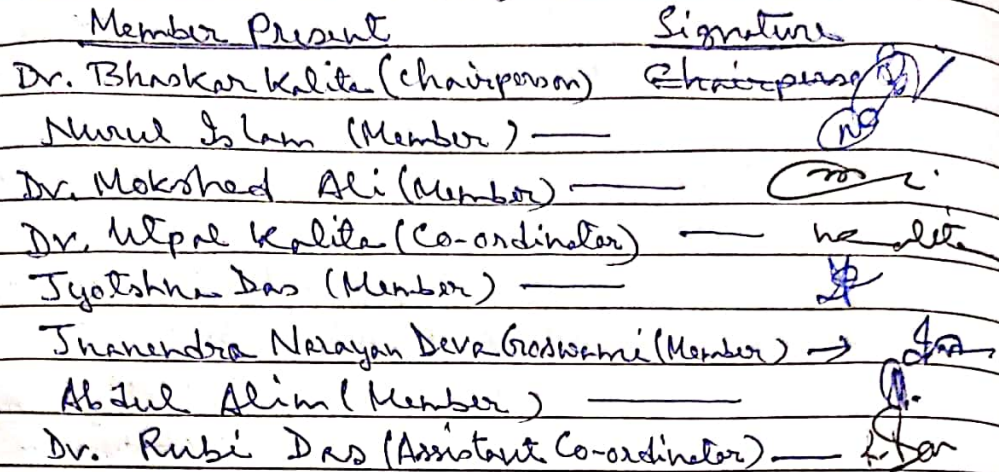 Member Present Signature
Dr. Bhaskar Kalita (Chairperson) Chairperson
Nurul Islam (Member) —
Dr. Mokshed Ali (Member) —
Dr. Utpal Kalita (Co-ordinator) —
Jyotshna Das (Member) —
Jnanendra Narayan Deva Goswami (Member) →
Abdul Alim (Member) —
Dr. Rubi Das (Assistant Co-ordinator) —